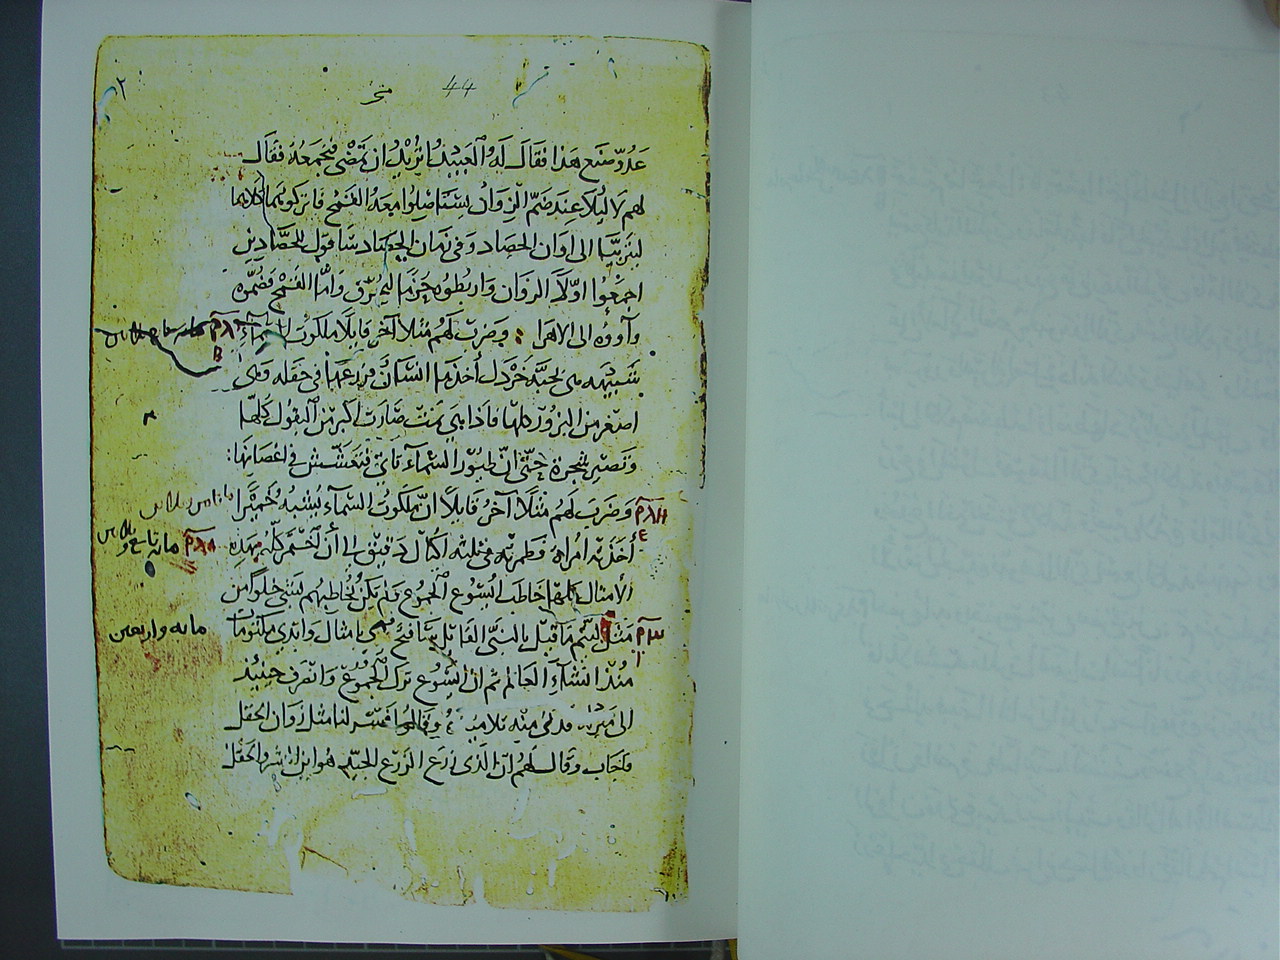 ٢ 44 متى
عدوّ صنع هذا فقال له العبيد اتريد ان نمضى فنجمعه فقال
لهم لا ليلا عند ضمّ الزوان تستاصلوا معه القمح فاتركوهما كلاهما
ليتربّيا الى اوان الحصاد وفى زمان الحصاد ساقول للحصّادين
اجمعوا اوّلا الزوان واربطوه حزما ليحرق وامّا القمح فضمّوه
وآووه الى الاهرا : وضرب لهم مثلا آخر قايلا ملكوت السماء
شبيهه هى بحبّة خردل أخذها انسان وزرعها فى حقله وهى
اصغر من البزور كلها فاذا هى نمت صارت اكبر من البقول كلها
وتصير شجرة حتى انّ طيور السماء تاتى فتعشّش فى اغصانها :
وضرب لهم مثلا آخر قايلا انّ ملكوت السماء يشبه خميرا
أخذته امراه فطمرته فى ثلثه اكيال دقيق الى أن اختمر كلّه بهذه
الأمثال كلها خاطب ايسوع الجموع ولم يكن يخاطبهم بشى خلوا من
مثل ليتم ما قيل بالنبّى القائل سافتح فمى بامثال وابدى مكتوما
منذ انشاء العالم ثم ان ايسوع ترك الجموع وانصرف حينيذ
الى منزله فدنى منه تلاميذه وقالوا فسّر لنا مثل زوان الحقل
فاجاب وقال لهم انّ الذى زرع الزرع الجيّد هو ابن البشر والحقل
مايه واربعين